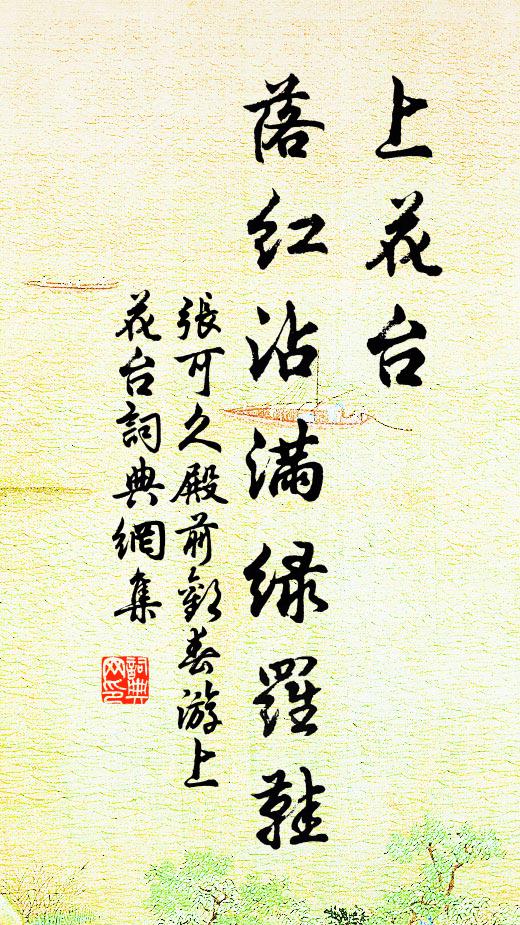 上花台
落红沾满绿羅鞋
張可久殿前歡春游上
花台詞典網集
詞典
网印